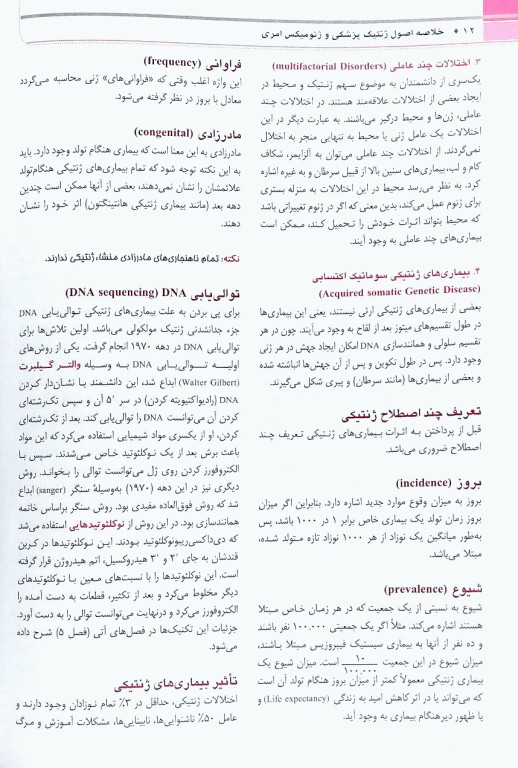 ۱۲ ♦ خلاصه اصول ژنتیک پزشکی و ژنومیکس امری
۳. اختلالات چند عاملی (multifactorial Disorders)
یک‌سری از دانشمندان به موضوع سهم ژنتیک و محیط در
ایجاد بعضی از اختلالات علاقه‌مند هستند. در اختلالات چند
عاملی، ژن‌ها و محیط درگیر می‌باشند. به عبارت دیگر در این
اختلالات یک عامل ژنی یا محیط به تنهایی منجر به اختلال
نمی‌گردند. از اختلالات چند عاملی می‌توان به آلزایمر، شکاف
کام و لب، بیماری‌های سنین بالا از قبیل سرطان و به غیره اشاره
کرد. به نظر می‌رسد محیط در این اختلالات به منزله بستری
برای ژنوم عمل می‌کند، بدین معنی که اگر در ژنوم تغییراتی باشد
که محیط بتواند اثرات خودش را تحمیل کند، ممکن است
بیماری‌های چند عاملی به وجود آیند.
۴. بیماری‌های ژنتیکی سوماتیک اکتسابی
(Acquired somatic Genetic Disease)
بعضی از بیماری‌های ژنتیکی ارثی نیستند، یعنی این بیماری‌ها
در طول تقسیم‌های میتوز بعد از لقاح به وجود می‌آیند. چون در هر
تقسیم سلولی و همانندسازی DNA امکان ایجاد جهش در هر ژنی
وجود دارد. پس در طول تکوین و پس از آن جهش‌ها انباشته شده
و بعضی از بیماری‌ها (مانند سرطان) و پیری شکل می‌گیرند.
تعریف چند اصطلاح ژنتیکی
قبل از پرداختن به اثرات بیماری‌های ژنتیکی تعریف چند
اصطلاح ضروری می‌باشد.
بروز (incidence)
بروز به میزان وقوع موارد جدید اشاره دارد. بنابراین اگر میزان
بروز زمان تولد یک بیماری خاص برابر ۱ در ۱۰۰۰ باشد، پس
به‌طور میانگین یک نوزاد از هر ۱۰۰۰ نوزاد تازه متولد شده،
مبتلا می‌باشد.
شیوع (prevalence)
شیوع به نسبتی از یک جمعیت که در هر زمان خاص مبتلا
هستند اشاره می‌کند. مثلاً اگر یک جمعیتی ۱۰۰،۰۰۰ نفر باشند
و ده نفر از آنها به بیماری سیستیک فیبروزیس مبتلا باشند،
میزان شیوع در این جمعیت ۱۰/۱۰۰،۰۰۰ است. میزان شیوع یک
بیماری ژنتیکی معمولاً کمتر از میزان بروز هنگام تولد آن است
که می‌تواند یا در اثر کاهش امید به زندگی (Life expectancy) و
یا ظهور دیرهنگام بیماری به وجود آید.
فراوانی (frequency)
این واژه اغلب وقتی که «فراوانی‌های» ژنی محاسبه می‌گردد
معادل با بروز در نظر گرفته می‌شود.
مادرزادی (congenital)
مادرزادی به این معنا است که بیماری هنگام تولد وجود دارد. باید
به این نکته توجه شود که تمام بیماری‌های ژنتیکی هنگام‌تولد
علائمشان را نشان نمی‌دهند، بعضی از آنها ممکن است چندین
دهه بعد (مانند بیماری ژنتیکی هانتینگتون) اثر خود را نشان
دهند.
نکته: تمام ناهنجاری‌های مادرزادی منشاء ژنتیکی ندارند.
توالی‌یابی DNA (DNA sequencing)
برای پی بردن به علت بیماری‌های ژنتیکی توالی‌یابی DNA
جزء جدانشدنی ژنتیک مولکولی می‌باشد. اولین تلاش‌ها برای
توالی‌یابی DNA در دهه ۱۹۷۰ انجام گرفت. یکی از روش‌های
اولیه توالی‌یابی DNA به وسیله والتر گیلبرت
(Walter Gilbert) ابداع شد، این دانشمند با نشان‌دار کردن
DNA (رادیواکتیویته کردن) در سر ʹ۵ آن و سپس تک‌رشته‌ای
کردن آن می‌توانست DNA را توالی‌یابی کند. بعد از تک‌رشته‌ای
کردن، او از یکسری مواد شیمیایی استفاده می‌کرد که این مواد
باعث برش بعد از یک نوکلئوتید خاص می‌شدند. سپس با
الکتروفورز کردن روی ژل می‌توانست توالی را بخواند. روش
دیگری نیز در این دهه (۱۹۷۰) به‌وسیلهٔ سنگر (sanger) ابداع
شد که روش فوق‌العاده مفیدی بود. روش سنگر براساس خاتمه
همانندسازی بود. در این روش از نوکلئوتیدهایی استفاده می‌شد
که دی‌داکسی‌ریبونوکلئوتید بودند. این نوکلئوتیدها در کربن
قندشان به جای ʹ۲ و ʹ۳ هیدروکسیل، اتم هیدروژن قرار گرفته
است. این نوکلئوتیدها را با نسبت‌های معین با نوکلئوتیدهای
دیگر مخلوط می‌کرد و بعد از تکثیر، قطعات به دست آمده را
الکتروفورز می‌کرد و درنهایت می‌توانست توالی را به دست آورد.
جزئیات این تکنیک‌ها در فصل‌های آتی (فصل ۵) شرح داده
می‌شود.
تأثیر بیماری‌های ژنتیکی
اختلالات ژنتیکی، حداقل در ۳٪ تمام نوزادان وجود دارند و
عامل ۵۰٪ ناشنوایی‌ها، نابینایی‌ها، مشکلات آموزش و مرگ